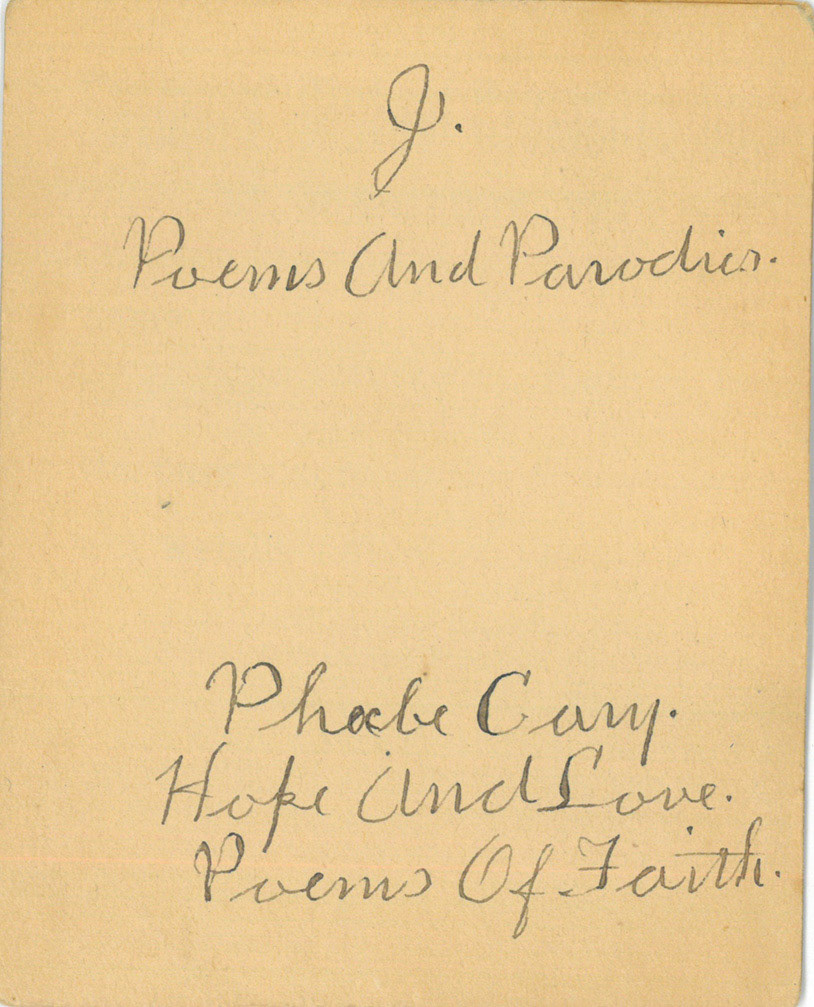 J.
Poems And Parodies.
Phœbe Cary.
Hope And Love.
Poems Of Faith.